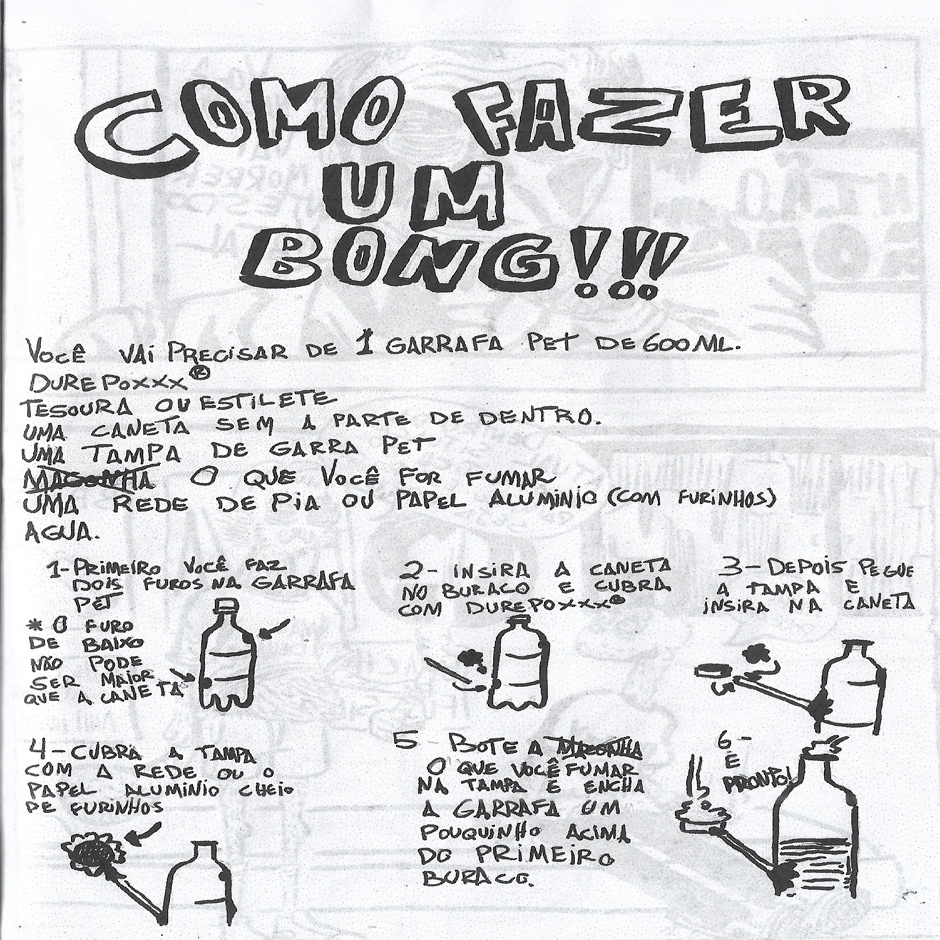 COMO FAZER
UM
BONG!!!
VOCÊ VAI PRECISAR DE 1 GARRAFA PET DE 600 ML.
DUREPOXXX®
TESOURA OU ESTILETE
UMA CANETA SEM A PARTE DE DENTRO.
UMA TAMPA DE GARRA PET
MACONHA O QUE VOCÊ FOR FUMAR
UMA REDE DE PIA OU PAPEL ALUMINIO (COM FURINHOS)
AGUA.
1- PRIMEIRO VOCÊ FAZ
DOIS FUROS NA GARRAFA
PET
* O FURO
DE BAIXO
NÃO PODE
SER MAIOR
QUE A CANETA
2- INSIRA A CANETA
NO BURACO E CUBRA
COM DUREPOXXX®
3- DEPOIS PEGUE
A TAMPA E
INSIRA NA CANETA
4- CUBRA A TAMPA
COM A REDE OU O
PAPEL ALUMINIO CHEIO
DE FURINHOS
5- BOTE A MACONHA
O QUE VOCÊ FUMAR
NA TAMPA E ENCHA
A GARRAFA UM
POUQUINHO ACIMA
DO PRIMEIRO
BURACO.
6-
E
PRONTO!